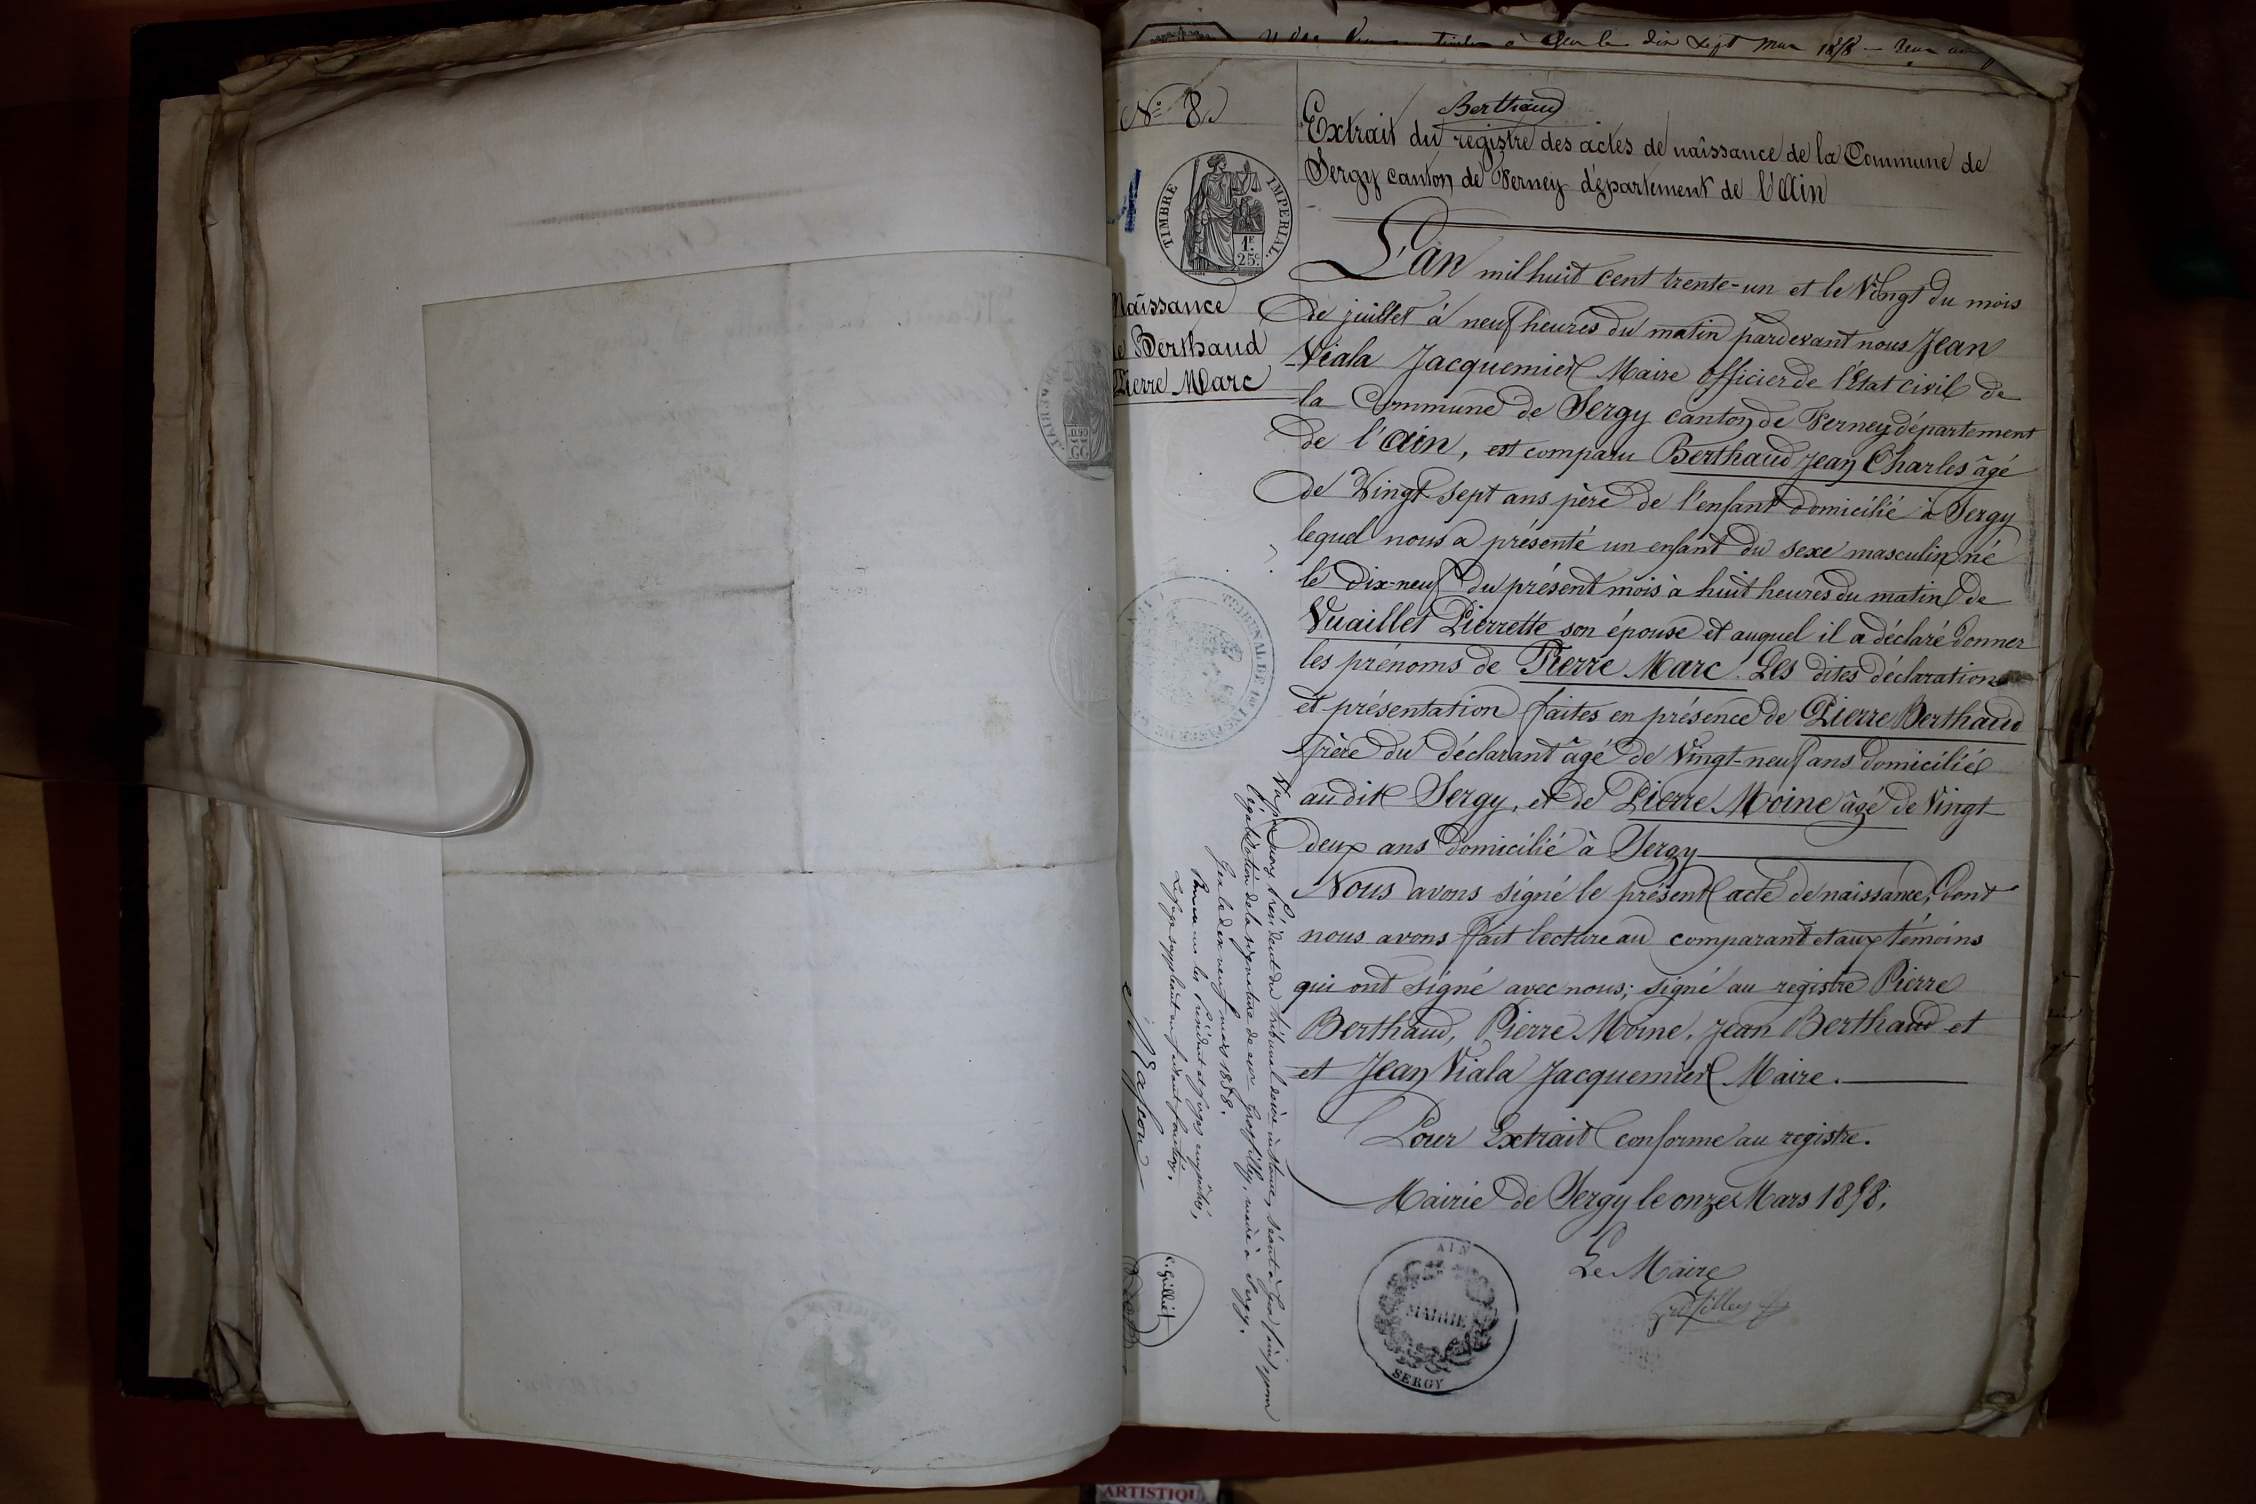 timbre à Gex le dix sept mars 1858
Nº 8
TIMBRE IMPERIAL.
1F
25c
Naissance
de Berthaud
Pierre Marc
Berthaud
Extrait du registre des actes de naîssance de la Commune de
Sergy canton de Ferney département de l'Ain
L'an mil huit cent trente-un et le Vingt du mois
de juillet à neuf heures du matin pardevant nous Jean
Viala Jacquemier Maire officier de l'état civil de
la Commune de Sergy canton de Ferney département
de l'Ain, est comparu Berthaud Jean Charles âgé
de Vingt sept ans père de l'enfant domicilié à Sergy
lequel nous a présenté un enfant du sexe masculin né
le dix-neuf du présent mois à huit heures du matin de
Vuaillet Pierrette son épouse et auquel il a déclaré donner
les prénoms de Pierre Marc. Les dites déclaration
et présentation faites en présence de Pierre Berthaud
frère du déclarant âgé de Vingt-neuf ans domicilié
au dit Sergy, et de Pierre Moine âgé de Vingt
deux ans domicilié à Sergy
Nous avons signé le présent acte de naissance, dont
nous avons fait lecture au comparant et aux témoins
qui ont signé avec nous; signé au registre Pierre
Berthaud, Pierre Moine, Jean Berthaud et
et Jean Viala Jacquemier Maire.
Pour Extrait conforme au registre.
Mairie de Sergy le onze Mars 1858.
Le Maire
AIN
MAIRIE
SERGY
TRIBUNAL DE 1re INSTANCE
Vu par nous Président du tribunal de 1ère instance, séant à Gex pour
légalisation de la signature de Mr Grosfilley, maire à Sergy.
Gex le dix neuf mars 1858.
Pour les Président et juges empêchés,
Le juge suppléant en faisant fonction,
C. Grilliet
ARTISTIQU